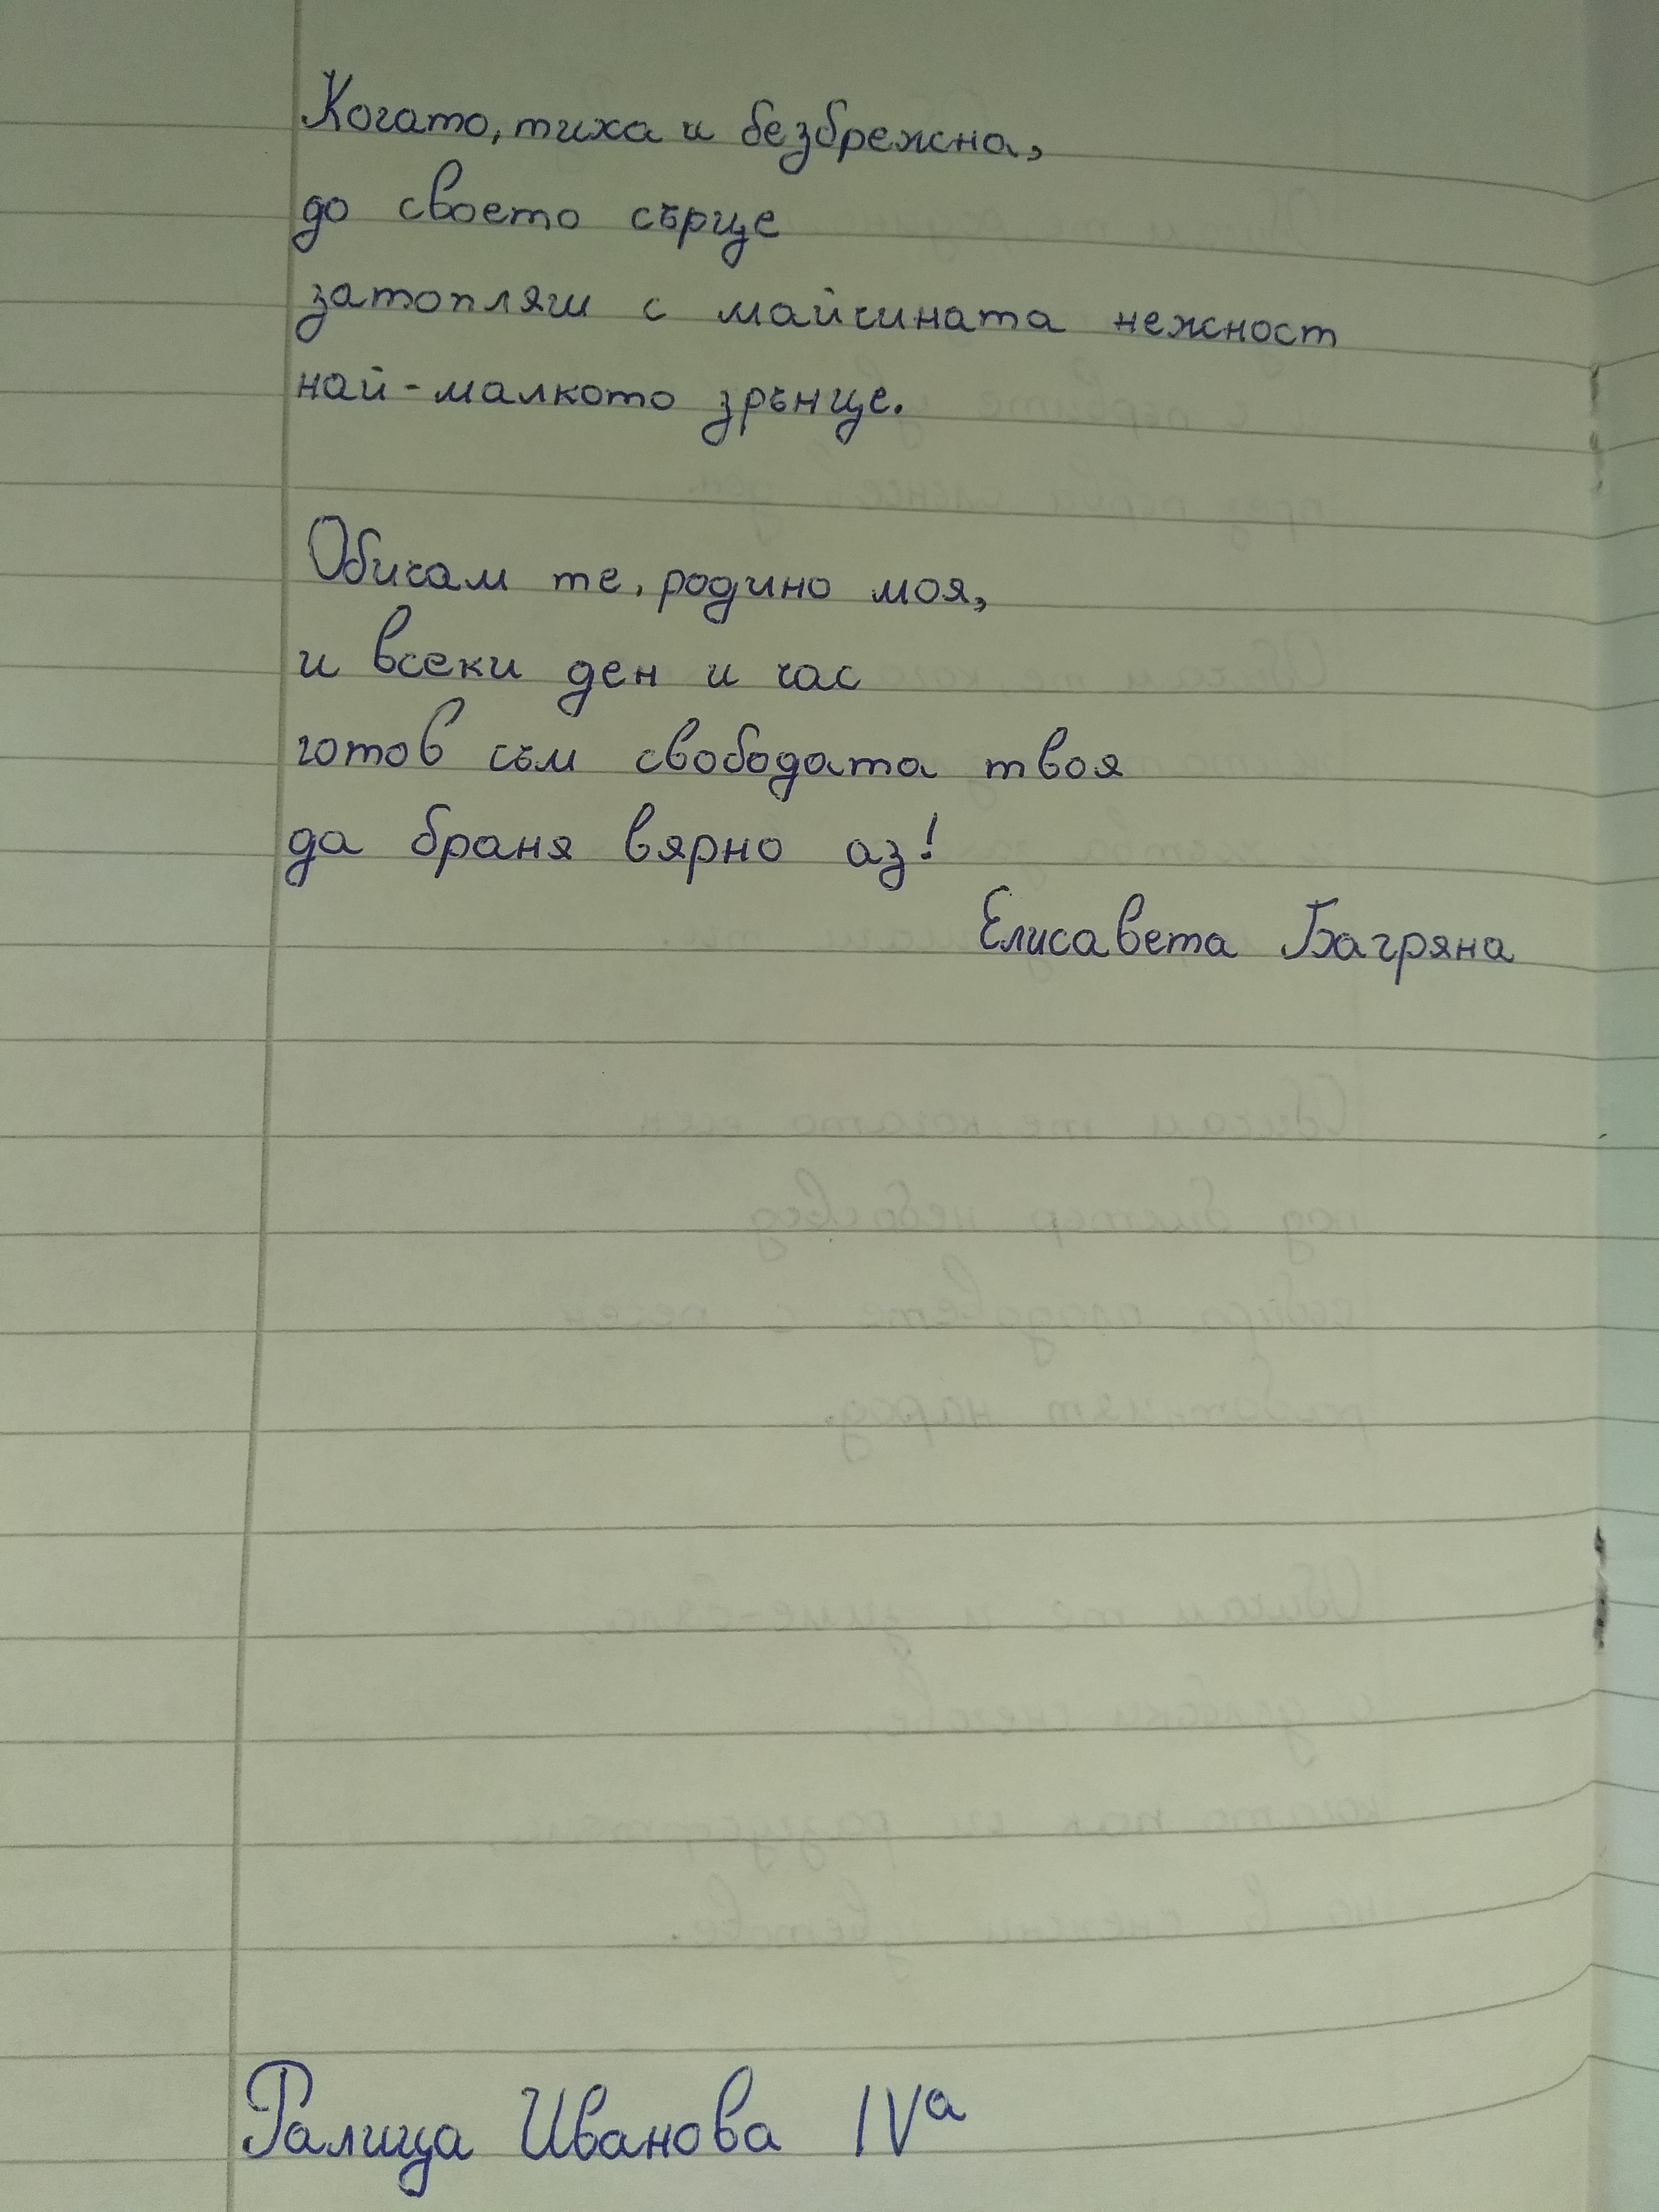 Когато, тиха и безбрежна,
до своето сърце
затопляш с майчината нежност
най-малкото зрънце.
Обичам те, родино моя,
и всеки ден и час
готов съм свободата твоя
да браня вярно аз!
Елисавета Багряна
Ралица Иванова IVа